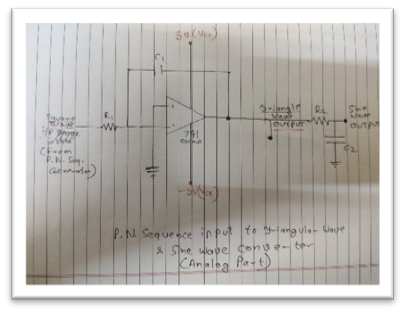 5V(Vcc)
C1
Square
wave
R1
(From
P.N. Seq.
Generator)
741
opamp
Triangle
wave
output
R2
Sine
wave
output
C2
-5V(VEE)
P.N. Sequence input to triangular wave
& Sine wave converter
(Analog Part)